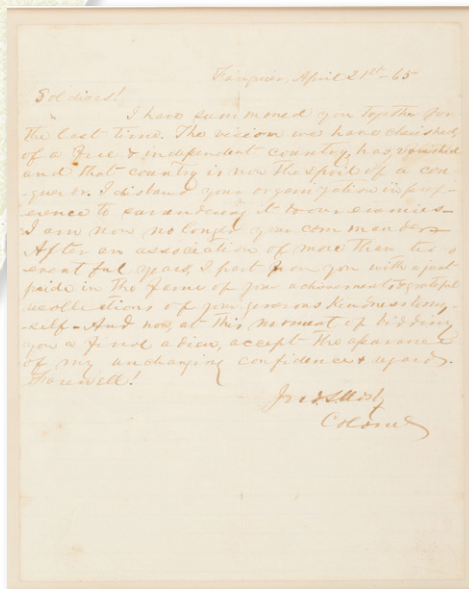 Fauquier, April 21st - 65
Soldiers!
I have summoned you together for
the last time. The vision we have cherished,
of a free & independent country, has vanished
and that country is now the spoil of a con-
queror. I disband your organization in pref-
erence to surrendering it to our enemies -
I am now no longer your commander
After an association of more than two
eventful years, I part from you with a just
pride in the fame of your achievements & grateful
recollections of your generous kindness to my-
self - And now, at this moment of bidding
you a final adieu, accept the assurance
of my unchanging confidence & regard.
Farewell!
Jno S. Mosby
Colonel